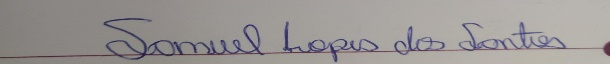 Samuel Lopes dos Santos